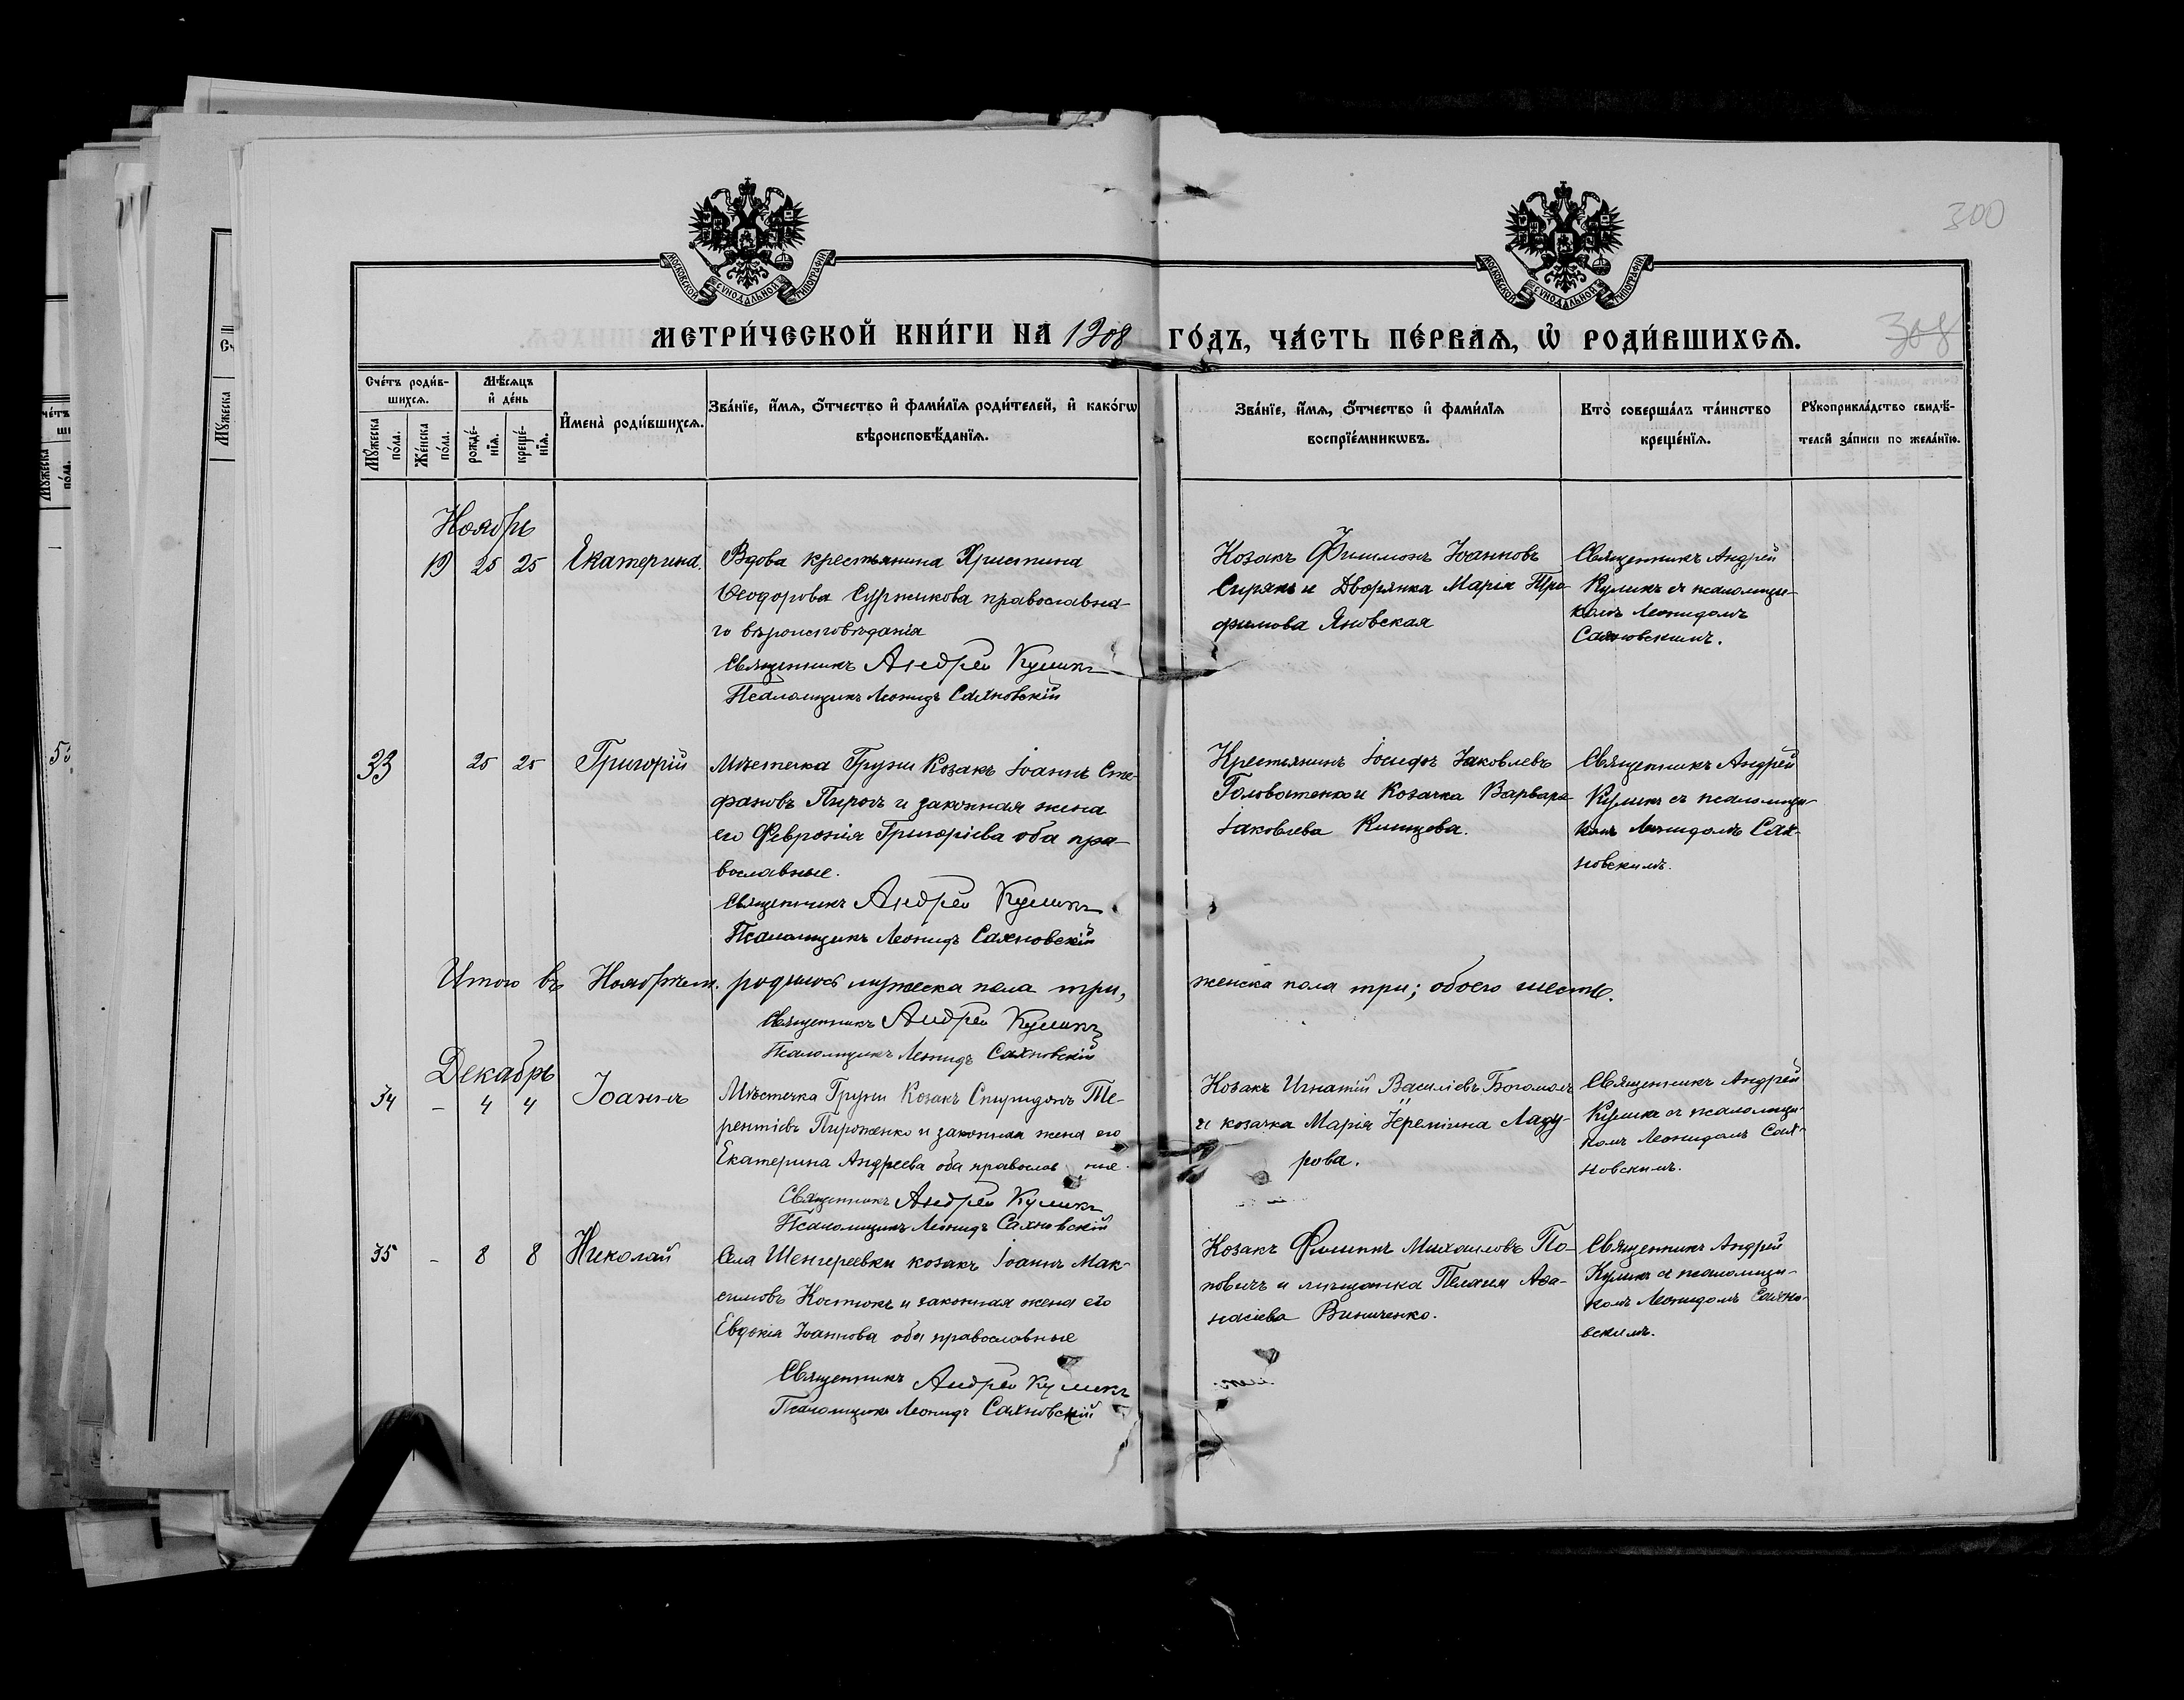 300
МОСКОВСКОЙ СѴНОДАЛЬНОЙ ТИПОГРАФІИ
МОСКОВСКОЙ СѴНОДАЛЬНОЙ ТИПОГРАФІИ
МЕТРИ́ЧЕСКОЙ КНИ́ГИ НА 1908 ГО́ДЪ, ЧА́СТЬ ПЕ́РВАѦ, Ѡ҆ РОДИ́ВШИХСѦ.
308
Сче́тъ роди́в-
шихсѧ.
Мꙋ́жеска по́ла.
Же́нска по́ла.
Мѣ́сѧцъ
и҆ де́нь
рожде́-
нїѧ.
креще́-
нїѧ.
И҆мена̀ роди́вшихсѧ.
Зва́нїе, и҆́мѧ, ѻ҆́тчество и҆ фами́лїѧ роди́телей, и҆ како́гѡ
вѣроисповѣ́данїѧ.
Зва́нїе, и҆́мѧ, ѻ҆́тчество и҆ фами́лїѧ
воспрїе́мникѡвъ.
Кто̀ соверша́лъ та́инство
креще́нїѧ.
Рꙋкоприкла́дство свидѣ́-
телей за́писи по жела́нїю.
Ноябрь
19 25 25 Екатерина.
Вдова крестьянина Христина
Ѳеодорова Суржикова православна-
го вѣроисповѣданія
Священникъ Андрей Куликъ
Псаломщикъ Леонидъ Сахновскій
Козакъ Филимонъ Іоанновъ
Сирякъ и Дворянка Марія Тро-
фимова Яновская
Священникъ Андрей
Куликъ съ псаломщи-
комъ Леонидомъ
Сахновскимъ.
33 25 25 Григорій
Мѣстечка Груни Козакъ Іоаннъ Сте-
фановъ Пирогъ и законная жена
его Феврѳнія Григоріева оба пра-
вославные.
Священникъ Андрей Куликъ
Псаломщикъ Леонидъ Сахновскій
Крестьянинъ Іосифъ Іаковлевъ
Головатенко и Козачка Варвара
Іаковлева
Священникъ Андрей
Куликъ съ псаломщи-
комъ Леонидомъ Сах-
новскимъ.
Итого въ Ноябрѣ м. родилось мужеска пола три, женска пола три; обоего шесть.
Священникъ Андрей Куликъ
Псаломщикъ Леонидъ Сахновскій
Декабрь
34 – 4 4 Іоаннъ
Мѣстечка Груни Козакъ Спиридонъ Те-
рентіевъ Пироженко и законная жена его
Екатерина Андреева оба православные.
Священникъ Андрей Куликъ
Псаломщикъ Леонидъ Сахновскій
Козакъ Игнатій Василіевъ Богомолъ
и козачка Марія Іереміина Ладу-
рова.
Священникъ Андрей
Куликъ съ псаломщи-
комъ Леонидомъ Сах-
новскимъ.
35 – 8 8 Николай
Села Шенгереевки козакъ Іоаннъ Мак-
симовъ Костюкъ и законная жена его
Евдокія Іоаннова оба православные
Священникъ Андрей Куликъ
Псаломщикъ Леонидъ Сахновскій
Козакъ Филиппъ Михаиловъ По-
повичъ и мѣщанка Пелагія Аѳа-
насіева Винниченко.
Священникъ Андрей
Куликъ съ псаломщи-
комъ Леонидомъ Сахно-
вскимъ.